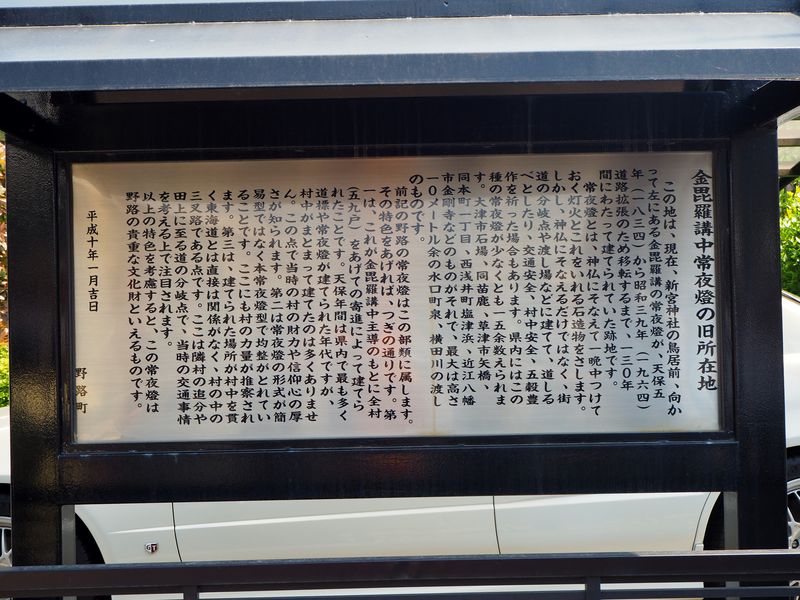 金毘羅講中常夜燈の旧所在地
この地は、現在、新宮神社の鳥居前、向か
って左にある金毘羅講の常夜燈が、天保五
年（一八三四）から昭和三九年（一九六四）
道路拡張のため移転するまで、一三〇年
間にわたって建てられていた跡地です。
常夜燈とは、神仏にそなえて一晩中つけて
おく灯火とこれをいれる石造物をさします。
しかし、神仏にそなえるだけではなく、街
道の分岐点や渡し場などに建てて、道しる
べとしたり、交通安全、村中安全、五穀豊
作を祈った場合もあります。県内にはこの
種の常夜燈が少なくとも一五余数えられま
す。大津市石場、同苗鹿、草津市矢橋、
同本町一丁目、西浅井町塩津浜、近江八幡
市金剛寺などのものがそれで、最大は高さ
一〇メートル余の水口町泉、横田川の渡し
のものです。
前記の野路の常夜燈はこの部類に属します。
その特色をあげれば、つぎの通りです。第
一は、これが金毘羅講中主導のもとに全村
（五九戸）をあげての寄進によって建てら
れたことです。天保年間は県内で最も多く
道標や常夜燈が建てられた年代ですが、
村中がまとまって建てたのは多くありませ
ん。この点で当時の村の財力や信仰心の厚
さが知られます。第二は常夜燈の形式が簡
易型ではなく本常夜燈型で均整がとれてい
ることです。ここにも村の力量が推察され
ます。第三は、建てられた場所が村中を貫
く東海道とは直接は関係がなく、村の中の
三叉路である点です。ここは隣村の追分や
田上に至る道の分岐点で、当時の交通事情
を考える上で注目されます。
以上の特色を考慮すると、この常夜燈は
野路の貴重な文化財といえるものです。
平成十年一月吉日
野路町
GT